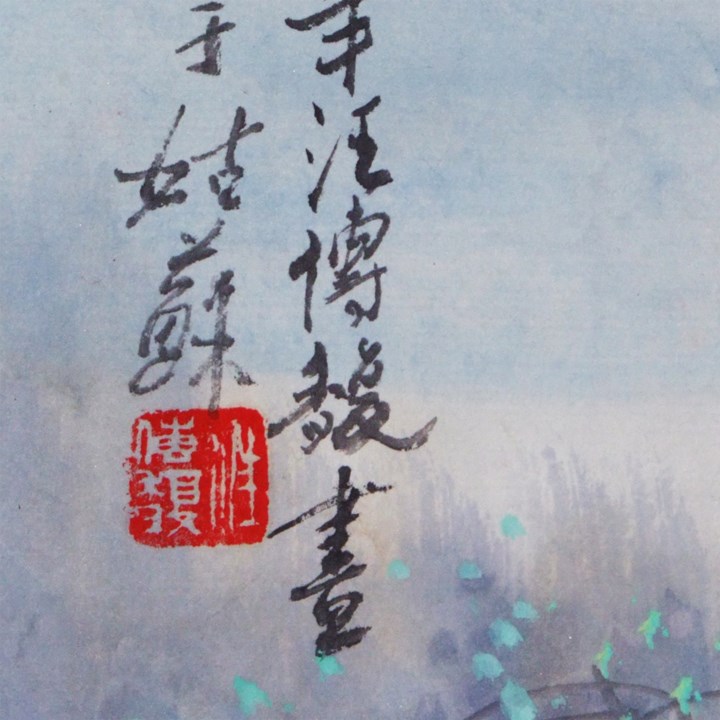 年汪傳馥畫
于姑蘇
汪傳馥